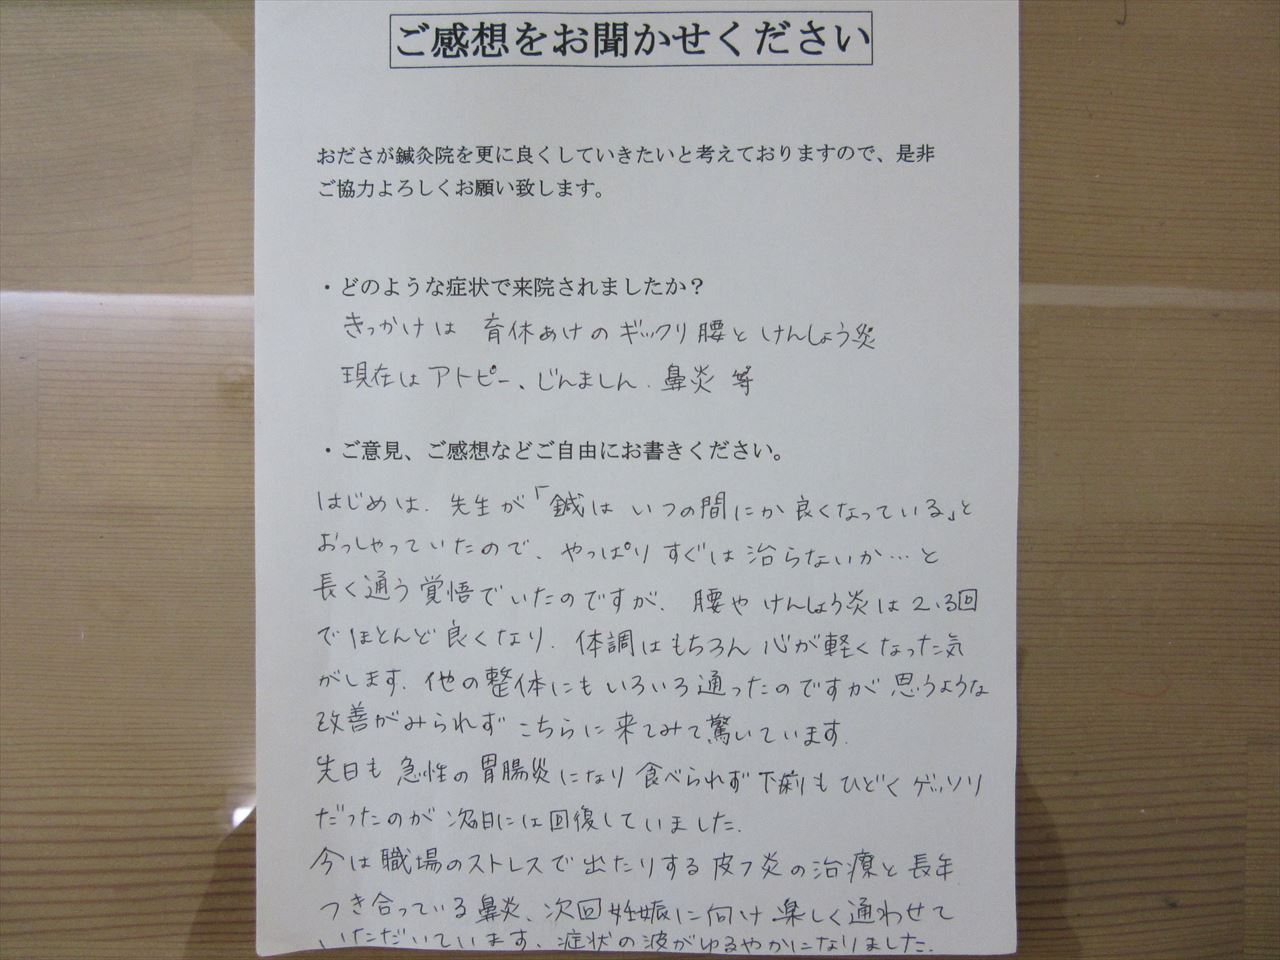 ご感想をお聞かせください
おださが鍼灸院を更に良くしていきたいと考えておりますので、是非
ご協力よろしくお願い致します。
・どのような症状で来院されましたか？
きっかけは 育休あけのギックリ腰と けんしょう炎
現在はアトピー、じんましん、鼻炎 等
・ご意見、ご感想などご自由にお書きください。
はじめは、先生が「鍼は いつの間にか 良くなっている」と
おっしゃっていたので、やっぱり すぐは 治らないか…と
長く通う覚悟でいたのですが、腰や けんしょう炎は 2、3回
でほとんど良くなり、体調はもちろん 心が軽くなった気
がします。他の整体にもいろいろ通ったのですが 思うような
改善がみられず こちらに来てみて驚いています。
先日も 急性の胃腸炎になり 食べられず 下痢もひどく ゲッソリ
だったのが 翌日には回復していました。
今は職場のストレスで出たりする皮フ炎の治療と長年
つき合っている鼻炎、次回妊娠に向け 楽しく通わせて
いただいています、症状の波がゆるやかになりました。